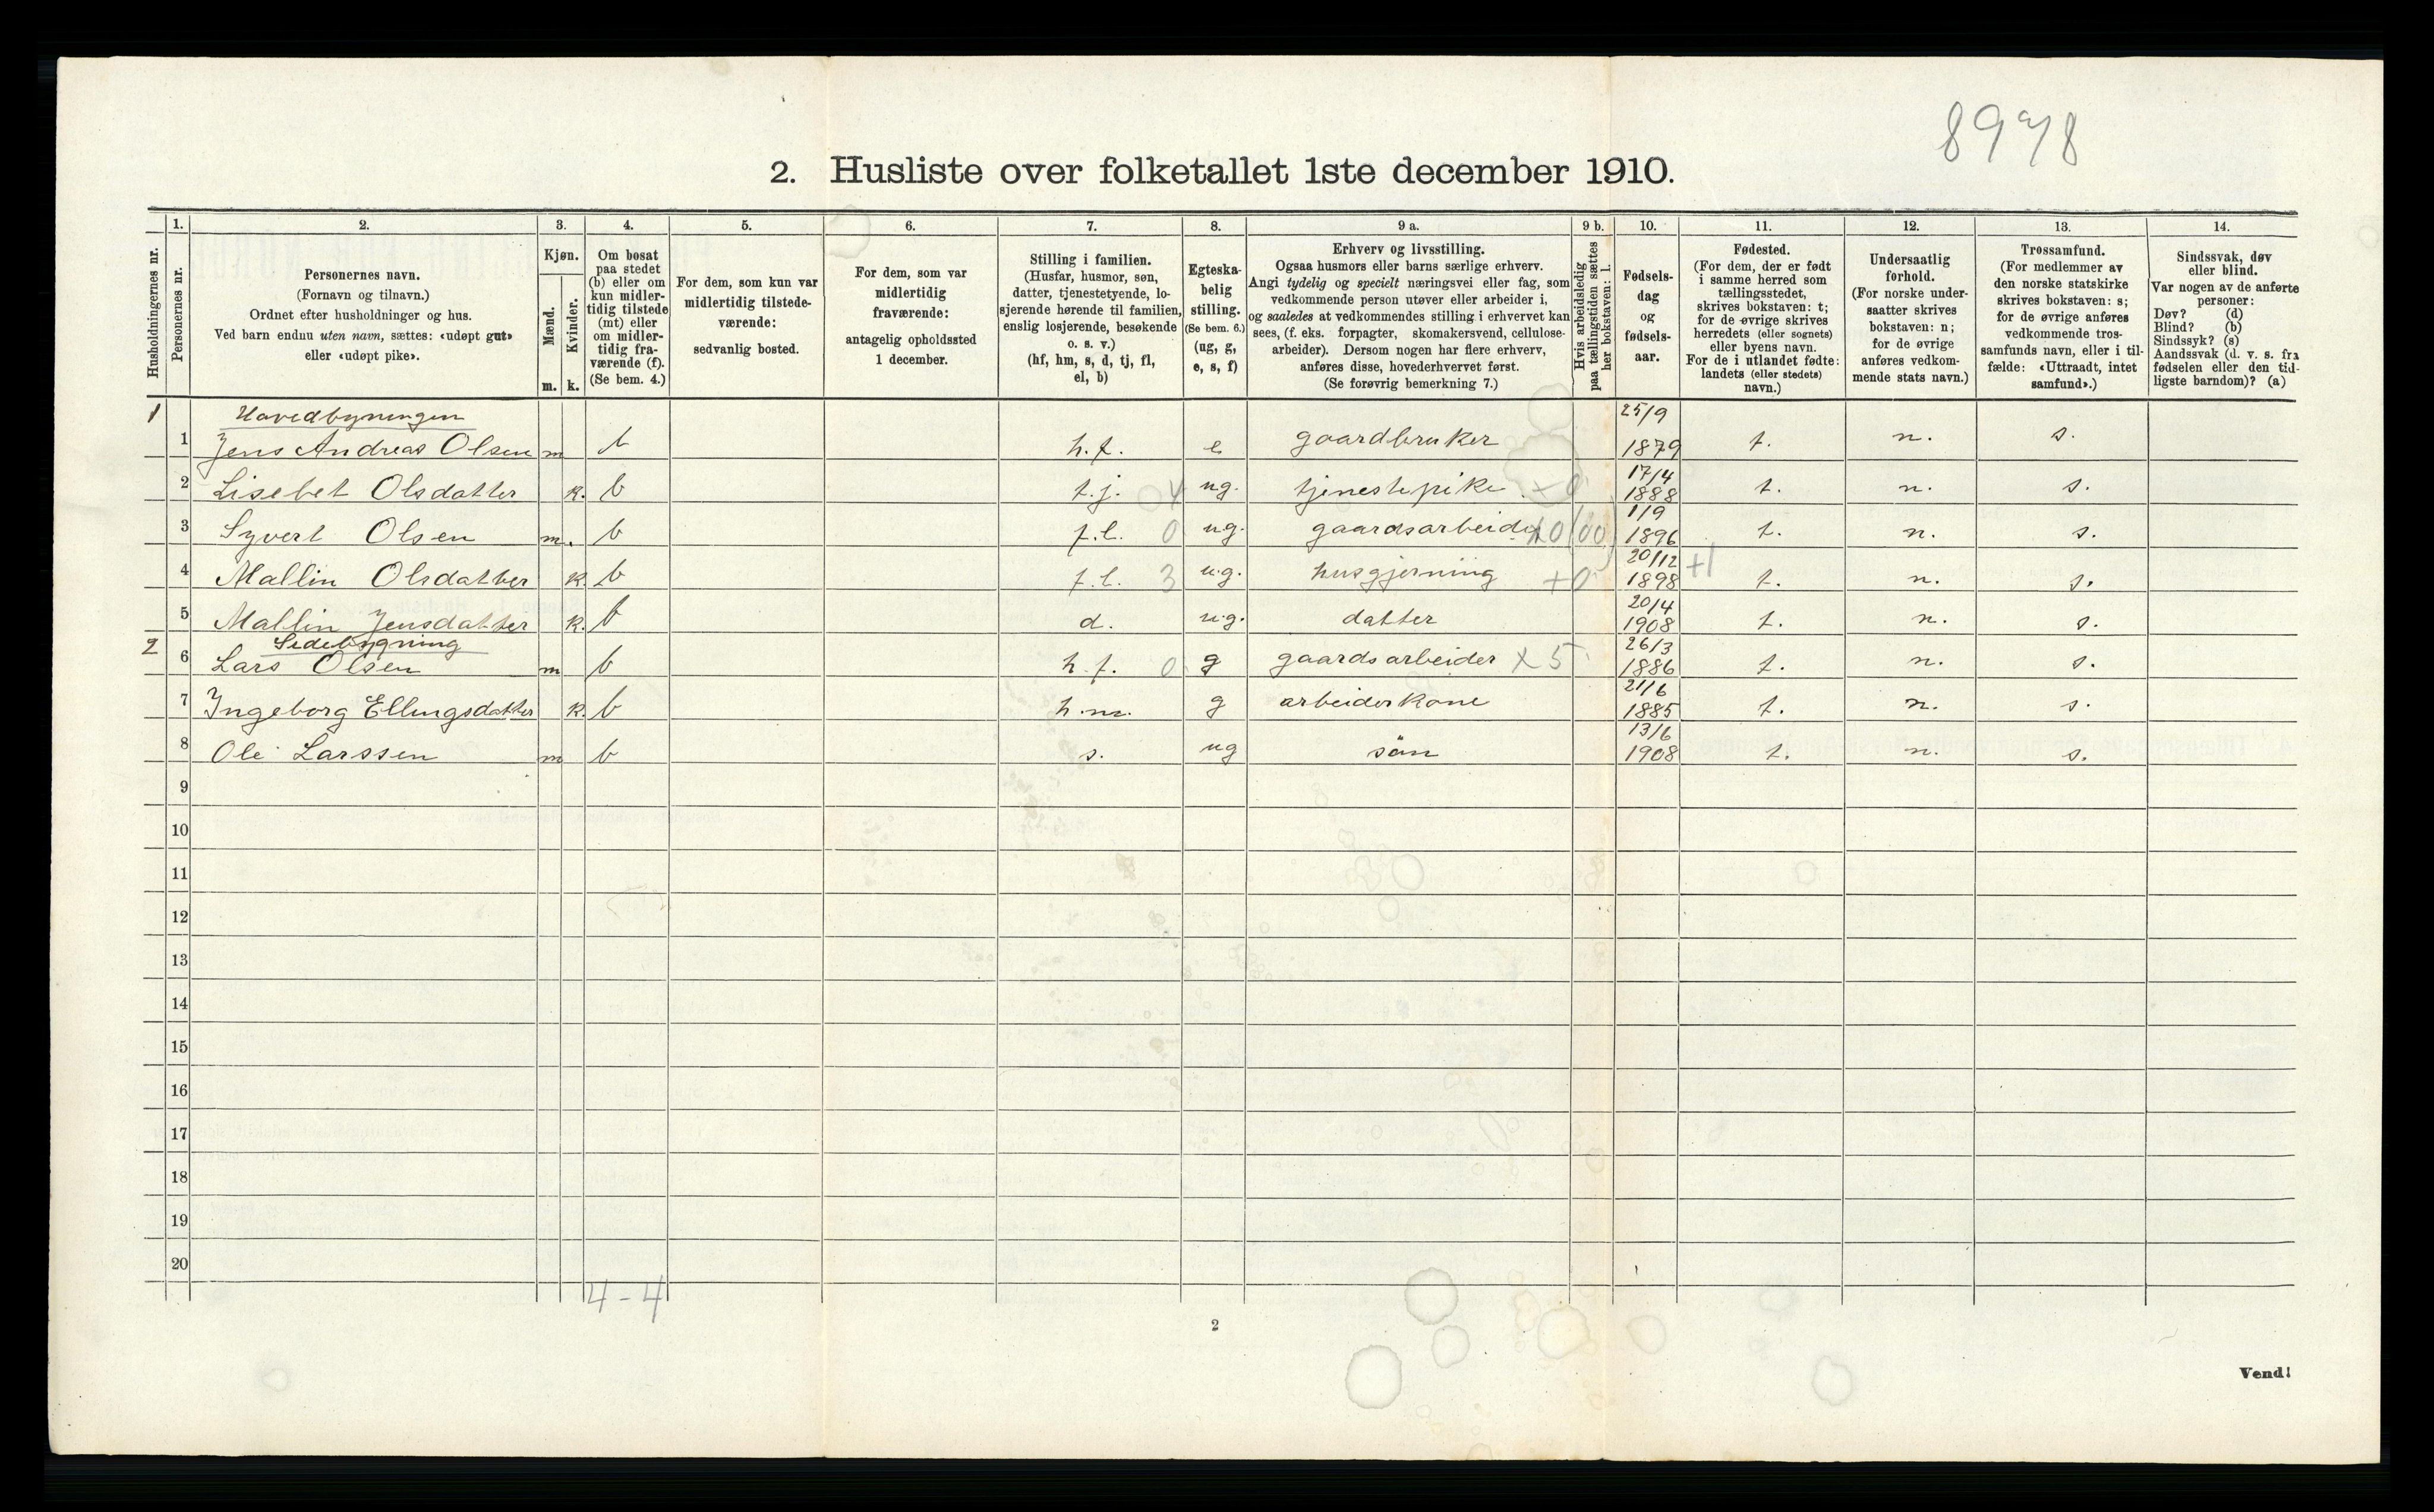 8978
2. Husliste over folketallet 1ste december 1910.
Husholdningernes nr.
1.
Personernes nr.
2.
Personernes navn.
(Fornavn og tilnavn.)
Ordnet efter husholdninger og hus.
Ved barn endnu uten navn, sættes: «udøpt gut»
eller «udøpt pike».
3.
Kjøn.
Mænd.
m.
Kvinder.
k.
4.
Om bosat
paa stedet
(b) eller om
kun midler-
tidig tilstede
(mt) eller
om midler-
tidig fra-
værende (f).
(Se bem. 4.)
5.
For dem, som kun var
midlertidig tilstede-
værende:
sedvanlig bosted.
6.
For dem, som var
midlertidig
fraværende:
antagelig opholdssted
1 december.
7.
Stilling i familien.
(Husfar, husmor, søn,
datter, tjenestetyende, lo-
sjerende hørende til familien,
enslig losjerende, besøkende
o. s. v.)
(hf, hm, s, d, tj, fl,
el, b)
8.
Egteska-
belig
stilling.
(Se bem. 6.)
(ug, g,
e, s, f)
9 a.
Erhverv og livsstilling.
Ogsaa husmors eller barns særlige erhverv.
Angi tydelig og specielt næringsvei eller fag, som
vedkommende person utøver eller arbeider i,
og saaledes at vedkommendes stilling i erhvervet kan
sees, (f. eks. forpagter, skomakersvend, cellulose-
arbeider). Dersom nogen har flere erhverv,
anføres disse, hovederhvervet først.
(Se forøvrig bemerkning 7.)
9 b.
Hvis arbeidsledig
paa tællingstiden sættes
her bokstaven: l.
10.
Fødsels-
dag
og
fødsels-
aar.
11.
Fødested.
(For dem, der er født
i samme herred som
tællingsstedet,
skrives bokstaven: t;
for de øvrige skrives
herredets (eller sognets)
eller byens navn.
For de i utlandet fødte:
landets (eller stedets)
navn.)
12.
Undersaatlig
forhold.
(For norske under-
saatter skrives
bokstaven: n;
for de øvrige
anføres vedkom-
mende stats navn.)
13.
Trossamfund.
(For medlemmer av
den norske statskirke
skrives bokstaven: s;
for de øvrige anføres
vedkommende tros-
samfunds navn, eller i til-
fælde: «Uttraadt, intet
samfund».)
14.
Sindssvak, døv
eller blind.
Var nogen av de anførte
personer:
Døv? (d)
Blind? (b)
Sindssyk? (s)
Aandssvak (d. v. s. fra
fødselen eller den tid-
ligste barndom)? (a)
1 Hovedbyningen 25/9
1 Jens Andreas Olsen m b h.f. e gaardbruker 1879 t. n. s.
17/4
2 Lisebet Olsdatter k. b t.j. 04 ug. tjenestepike +0 1888 t. n. s.
1/9
3 Syvert Olsen m. b f.l. 0 ug. gaardsarbeider +0 (00) 1896 t. n. s.
20/12 +1
4 Mallin Olsdatter k. b f.l. 3 u.g. husgjerning +0 1898 t. n. s.
20/4
5 Mallin Jensdatter k. b d. u.g. datter 1908 t. n. s.
2 Sidebygning 26/3
6 Lars Olsen m b h.f. 0 g gaardsarbeider x5 1886 t. n. s.
21/6
7 Ingeborg Ellingsdatter k. b h.m. g arbeiderkone 1885 t. n. s.
13/6
8 Ole Larssen m b s. ug sön 1908 t. n. s.
9
10
11
12
13
14
15
16
17
18
19
20
4-4
2
Vend!